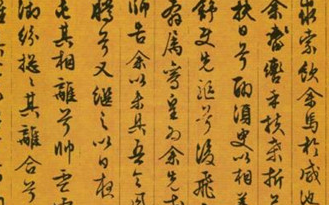 求索飲余馬於咸池
余轡乎扶桑折若
拂日兮聊須臾以相
舒使先驅兮後飛
屬鸞皇為余先
師告余以未具吾令鳳
騰兮又繼之以日夜
屯其相離兮帥雲
御紛總其離合兮